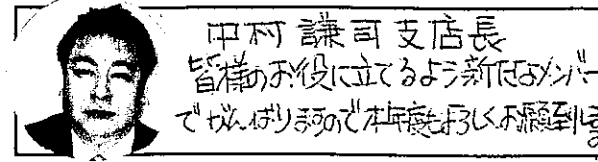 中村謙司支店長
皆様のお役に立てるよう新たなメンバー
でがんばりますので本年度もよろしくお願い致しま
す